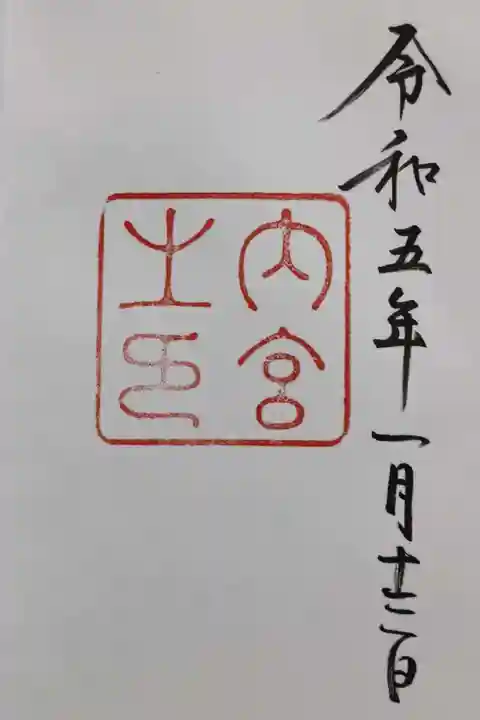 令和五年一月十二日
内宮
之印